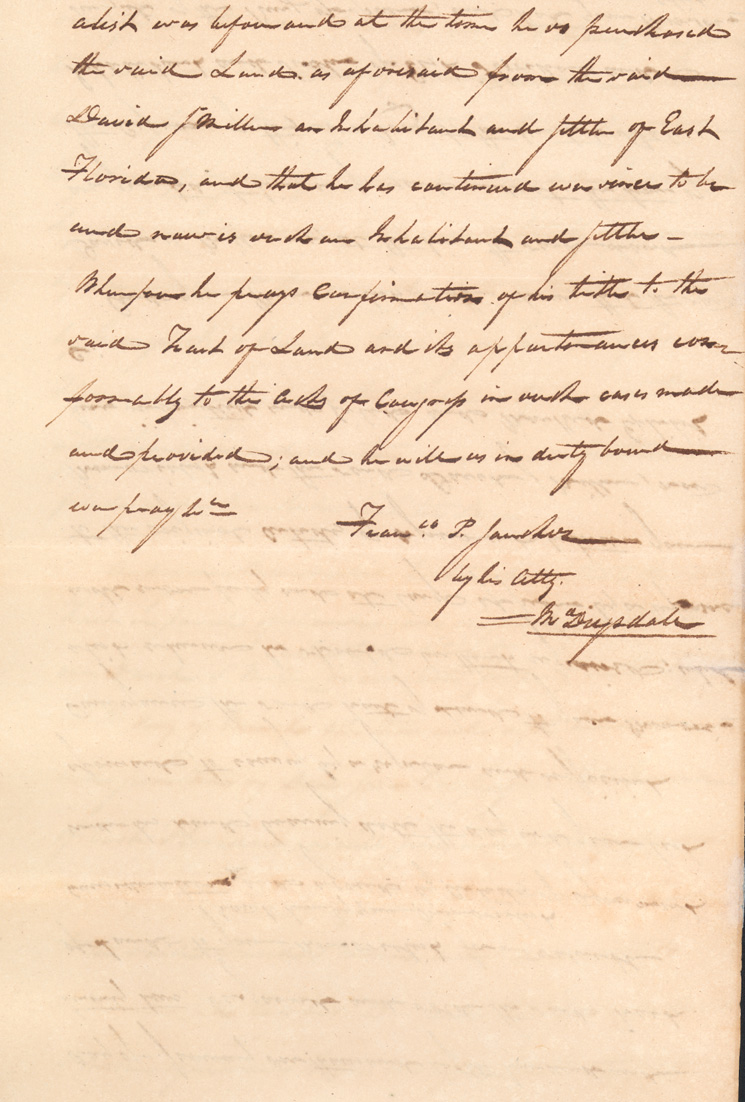 alist was before and at the time he so purchased
the said Land as aforesaid from the said
David S Miller an Inhabitant and settler of East
Florida, and that he has continued ever since to be
and now is such an Inhabitant and settler –
Wherefore he prays Confirmation of his title to the
said Tract of Land and its appurtenances con=
formably to the Acts of Congress in such cases made
and provided; and he will as in duty bound
ever pray &c
Franco P. Sanchez
by his Atty.
Drysdale